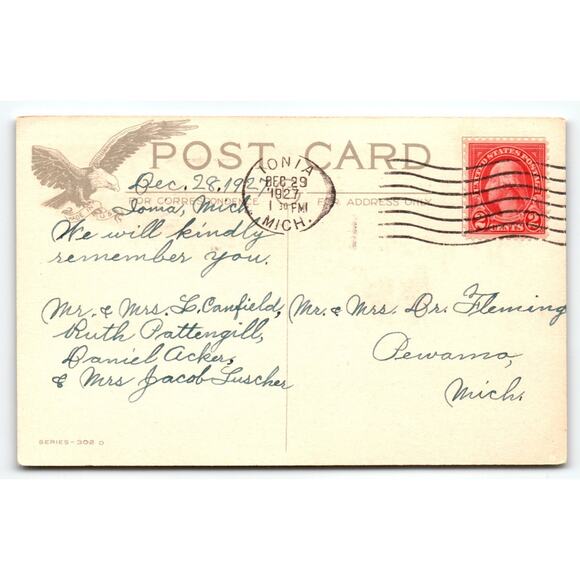 POST CARD
Dec. 28, 1927
FOR CORRESPONDENCE
FOR ADDRESS ONLY
Ionia, Mich.
We will kindly
remember you.
Mr. & Mrs. L. Canfield,
Ruth Pattengill,
Daniel Acker,
& Mrs Jacob Luscher
SERIES-302 D
IONIA
DEC 29
1927
1 30 PM
MICH.
UNITED STATES POSTAGE
2 CENTS 2
Mr. & Mrs. Dr. Fleming
Pewamo,
Mich.